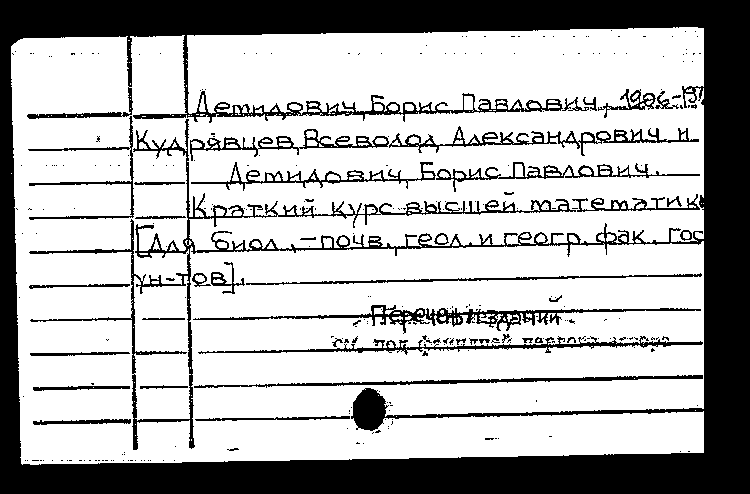 Демидович, Борис Павлович, 1906-197
Кудрявцев, Всеволод Александрович и
Демидович, Борис Павлович.
Краткий курс высшей математик
[Для биол.,-почв., геол. и геогр. фак. гос
ун-тов].
Перечень изданий
см. под фамилией первого автора